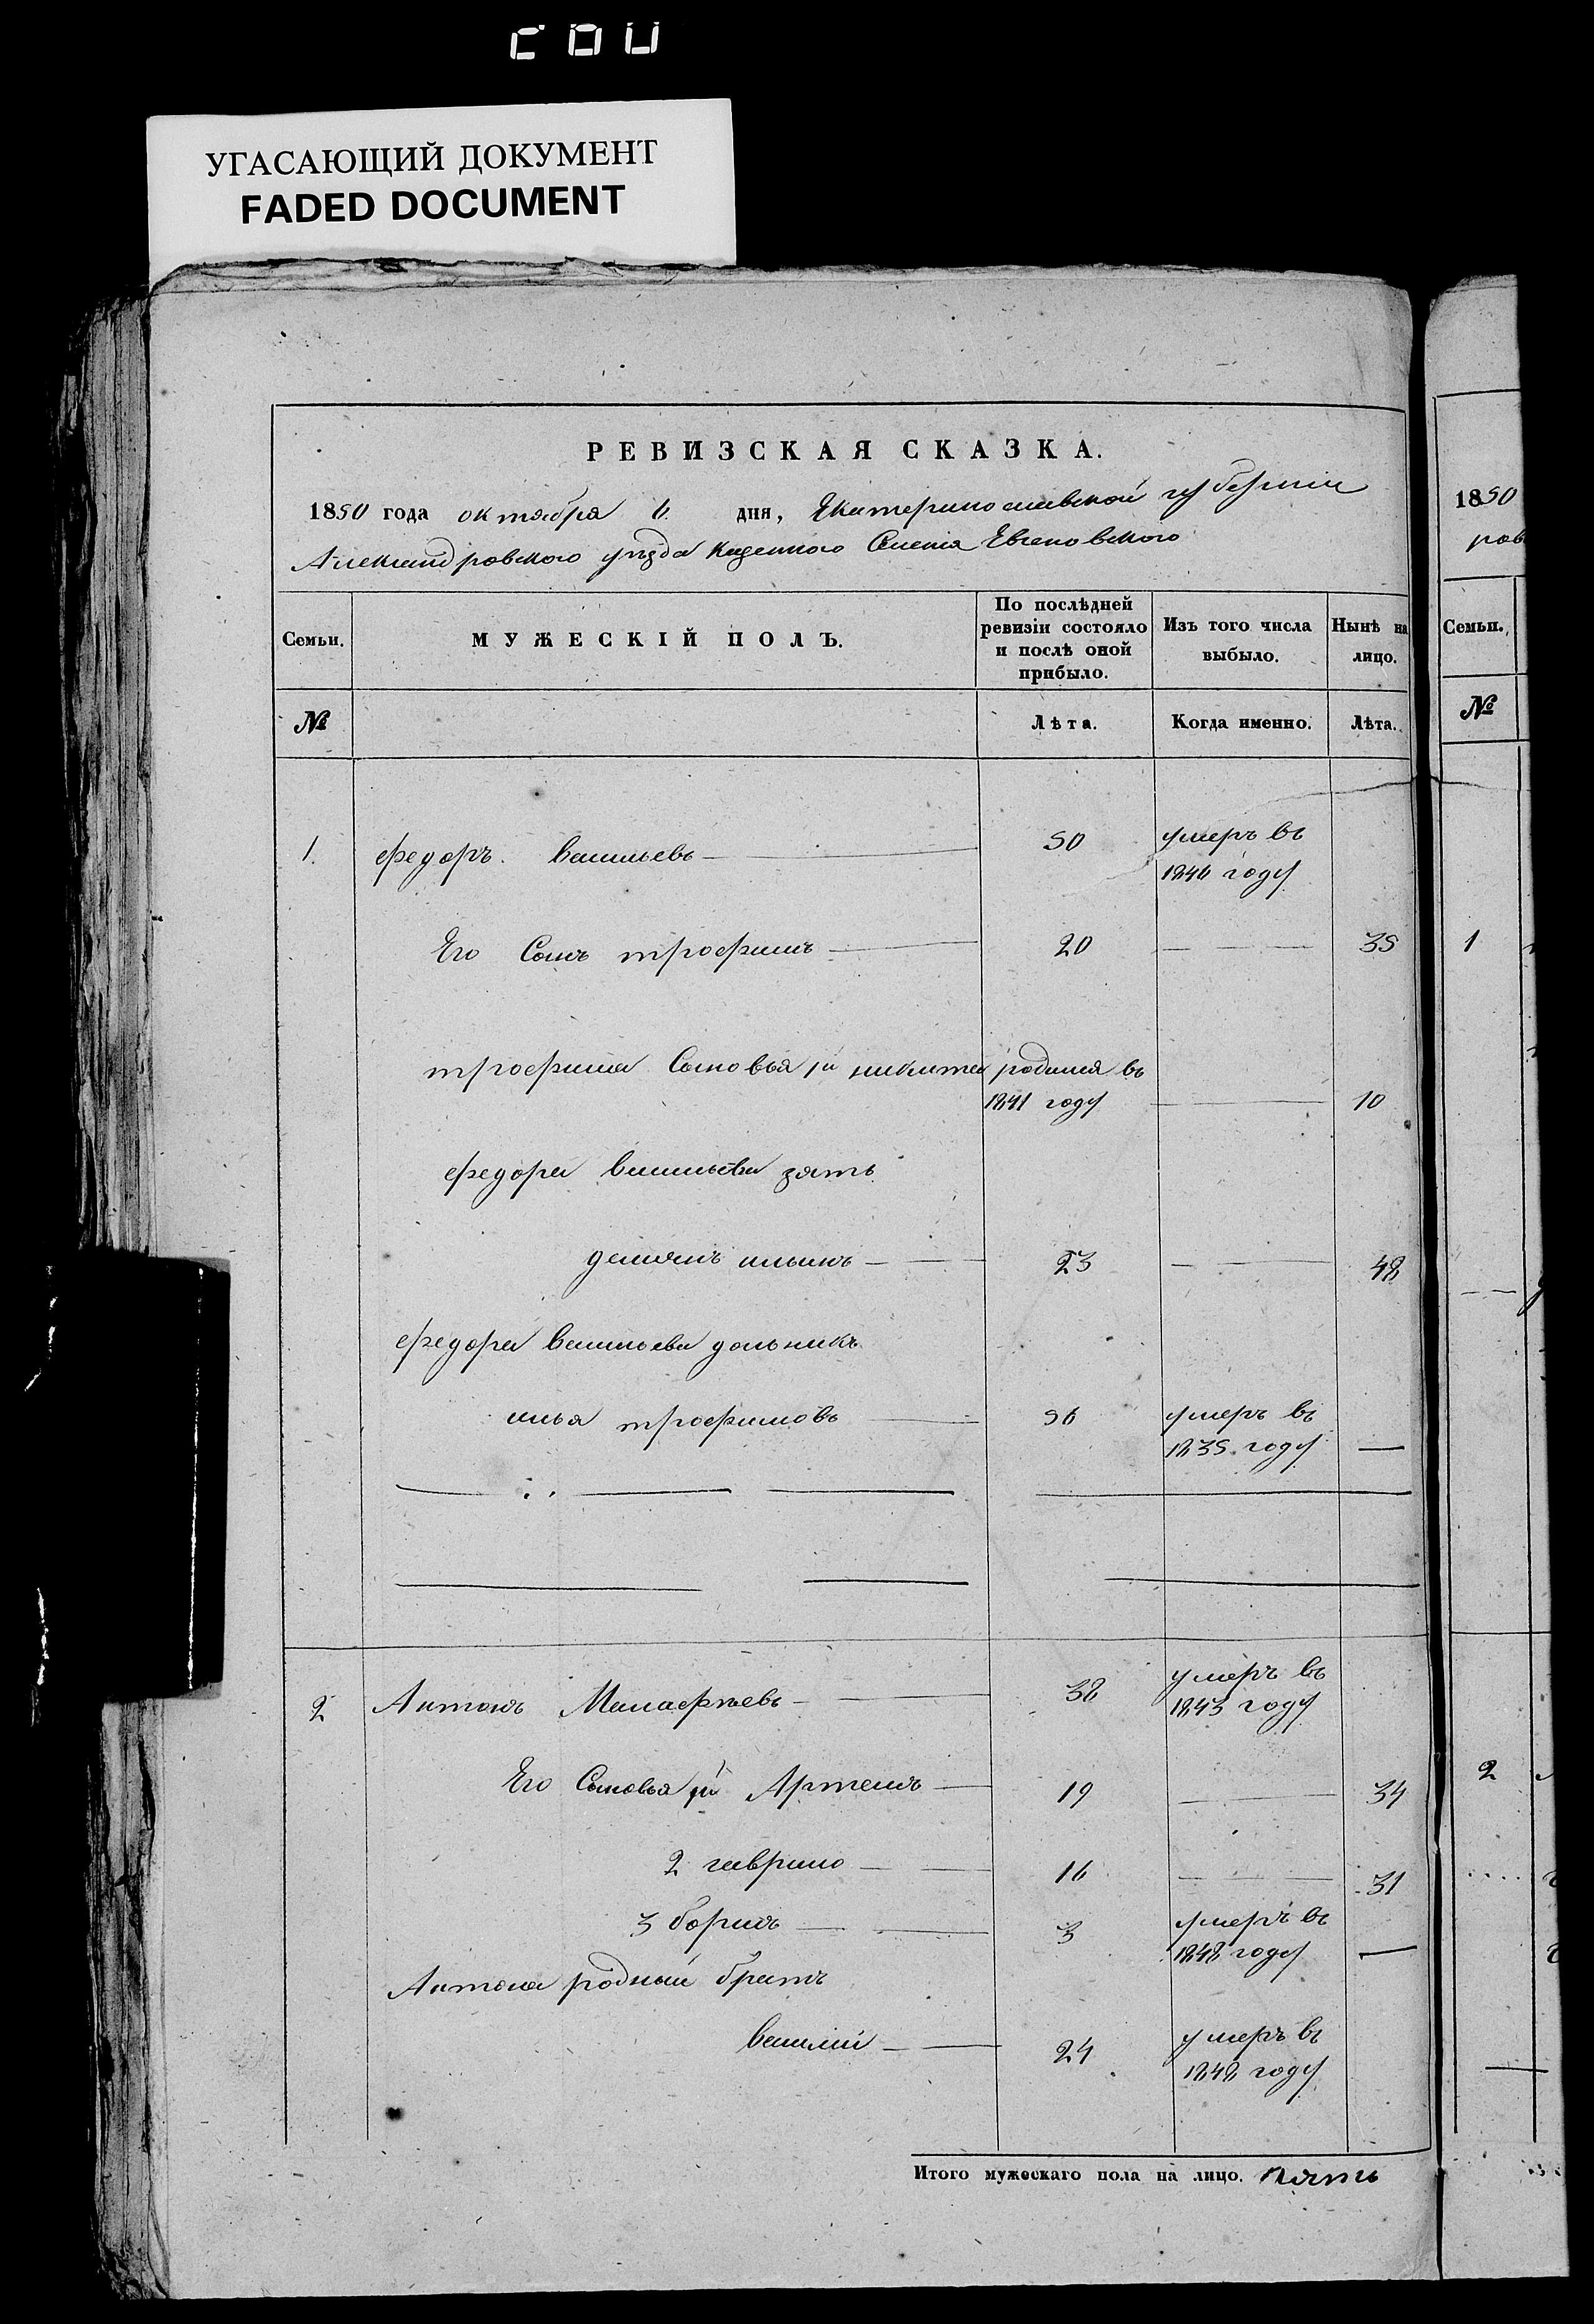 УГАСАЮЩИЙ ДОКУМЕНТ
FADED DOCUMENT
РЕВИЗСКАЯ СКАЗКА.
1850 года октября 6. дня, Екатеринославской губернии
Александровского уезда Казенного Селения Евгеновского
Семьи.
МУЖЕСКІЙ ПОЛЪ.
По послѣдней ревизіи состояло и послѣ оной прибыло.
Изъ того числа выбыло.
Нынѣ на лицо.
№
Лѣта.
Когда именно.
Лѣта.
1. федоръ. васильевъ 50 умеръ въ
1846 году
Его Сынъ трофимъ 20 35
трофима Сыновья 1й никита родился въ
1841 году 10
федора васильева зять
демянъ ильинъ 23 48
федора васильева дольникъ
илья трофимовъ 56 умеръ въ
1835. году
2 Антонъ Малафѣевъ 38 умеръ въ
1843 году
Его Сыновья 1й Артемъ 19 34
2 гаврило 16 31
3 борисъ 3 умеръ въ
1848 году
Антона родный братъ
василій 24 умеръ въ
1848 году
Итого мужескаго пола на лицо. пять
1850
ров
Семьи.
№
1
2